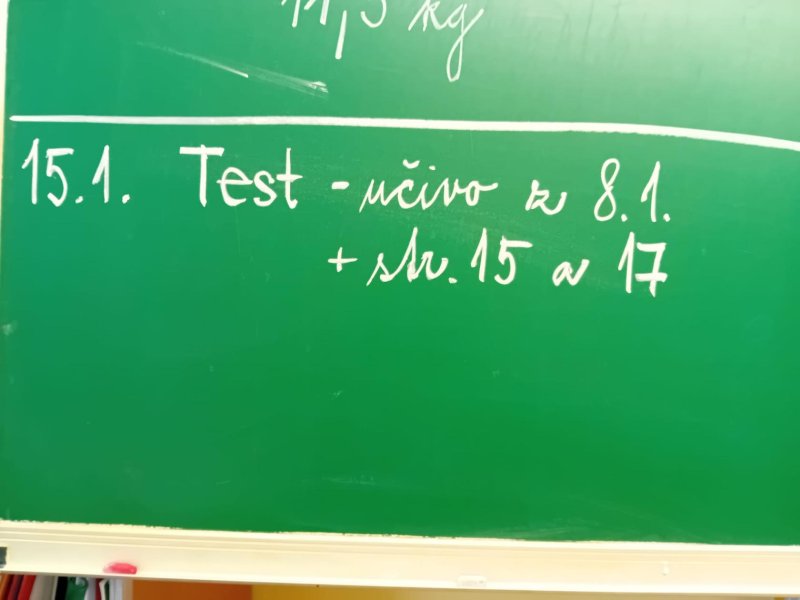 11,5 kg
15.1. Test - učivo z 8.1.
+ str. 15 a 17